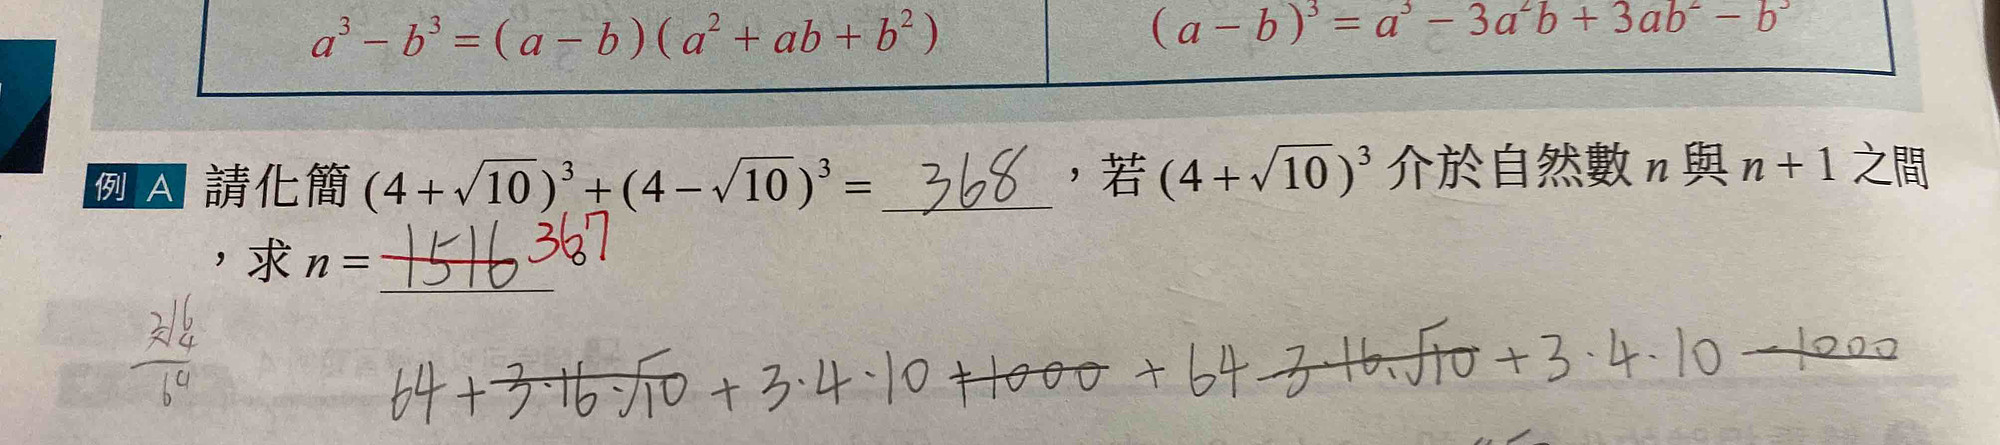 a³ − b³ = ( a − b ) ( a² + ab + b² )
( a − b )³ = a³ − 3a²b + 3ab² − b³
例 A 請化簡 (4 + √10)³ + (4 − √10)³ = 368 ，若 (4 + √10)³ 介於自然數 n 與 n + 1 之間
，求 n = 1516 367
16
4
64
64 + 3·16·√10 + 3·4·10 + 1000 + 64 − 3·16·√10 + 3·4·10 − 1000